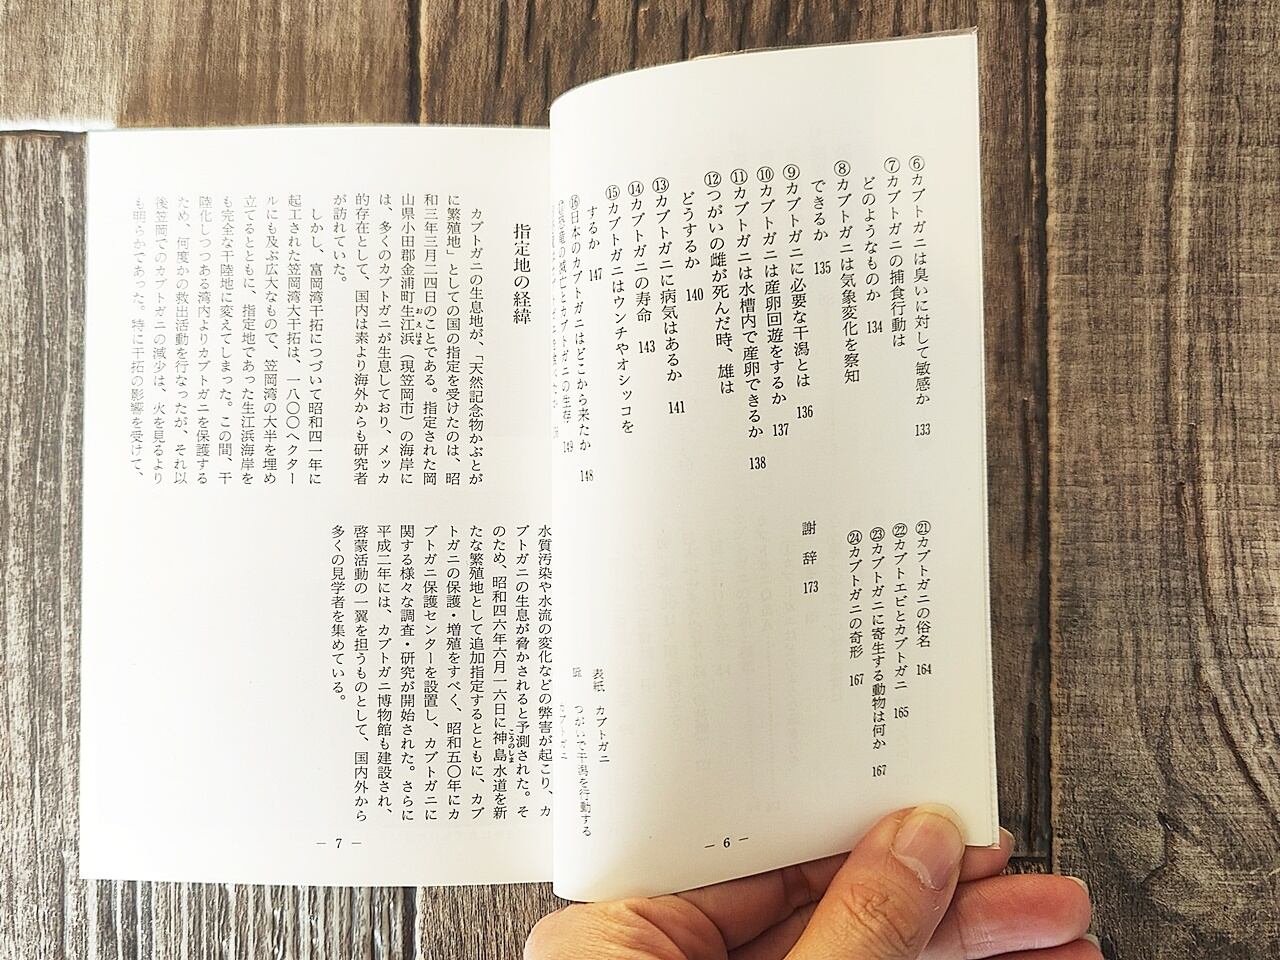 ⑥カブトガニは臭いに対して敏感か 133
⑦カブトガニの捕食行動は
どのようなものか 134
⑧カブトガニは気象変化を察知
できるか 135
⑨カブトガニに必要な干潟とは 136
⑩カブトガニは産卵回遊をするか 137
⑪カブトガニは水槽内で産卵できるか 138
⑫つがいの雌が死んだ時、雄は
どうするか 140
⑬カブトガニに病気はあるか 141
⑭カブトガニの寿命 143
⑮カブトガニはウンチやオシッコを
するか 147
⑯日本のカブトガニはどこから来たか 148
の滅亡とカブトガニの生存 149
㉑カブトガニの俗名 164
㉒カブトエビとカブトガニ 165
㉓カブトガニに寄生する動物は何か 167
㉔カブトガニの奇形 167
謝辞 173
表紙 カブトガニ
扉 つがいで干潟を行動する
カブトガニ
― 6 ―
指定地の経緯
カブトガニの生息地が、「天然記念物かぶとが
に繁殖地」としての国の指定を受けたのは、昭
和三年三月二四日のことである。指定された岡
山県小田郡金浦町生江浜（現笠岡市）の海岸に
おえはま
は、多くのカブトガニが生息しており、メッカ
的存在として、国内は素より海外からも研究者
が訪れていた。
しかし、富岡湾干拓につづいて昭和四一年に
起工された笠岡湾大干拓は、一八〇〇ヘクター
ルにも及ぶ広大なもので、笠岡湾の大半を埋め
立てるとともに、指定地であった生江浜海岸を
も完全な干陸地に変えてしまった。この間、干
陸化しつつある湾内よりカブトガニを保護する
ため、何度かの救出活動を行なったが、それ以
後笠岡でのカブトガニの減少は、火を見るより
も明らかであった。特に干拓の影響を受けて、
水質汚染や水流の変化などの弊害が起こり、カ
ブトガニの生息が脅かされると予測された。そ
のため、昭和四六年六月一六日に神島水道を新
こうのしま
たな繁殖地として追加指定するとともに、カブ
トガニの保護・増殖をすべく、昭和五〇年にカ
ブトガニ保護センターを設置し、カブトガニに
関する様々な調査・研究が開始された。さらに
平成二年には、カブトガニ博物館も建設され、
啓蒙活動の一翼を担うものとして、国内外から
多くの見学者を集めている。
― 7 ―